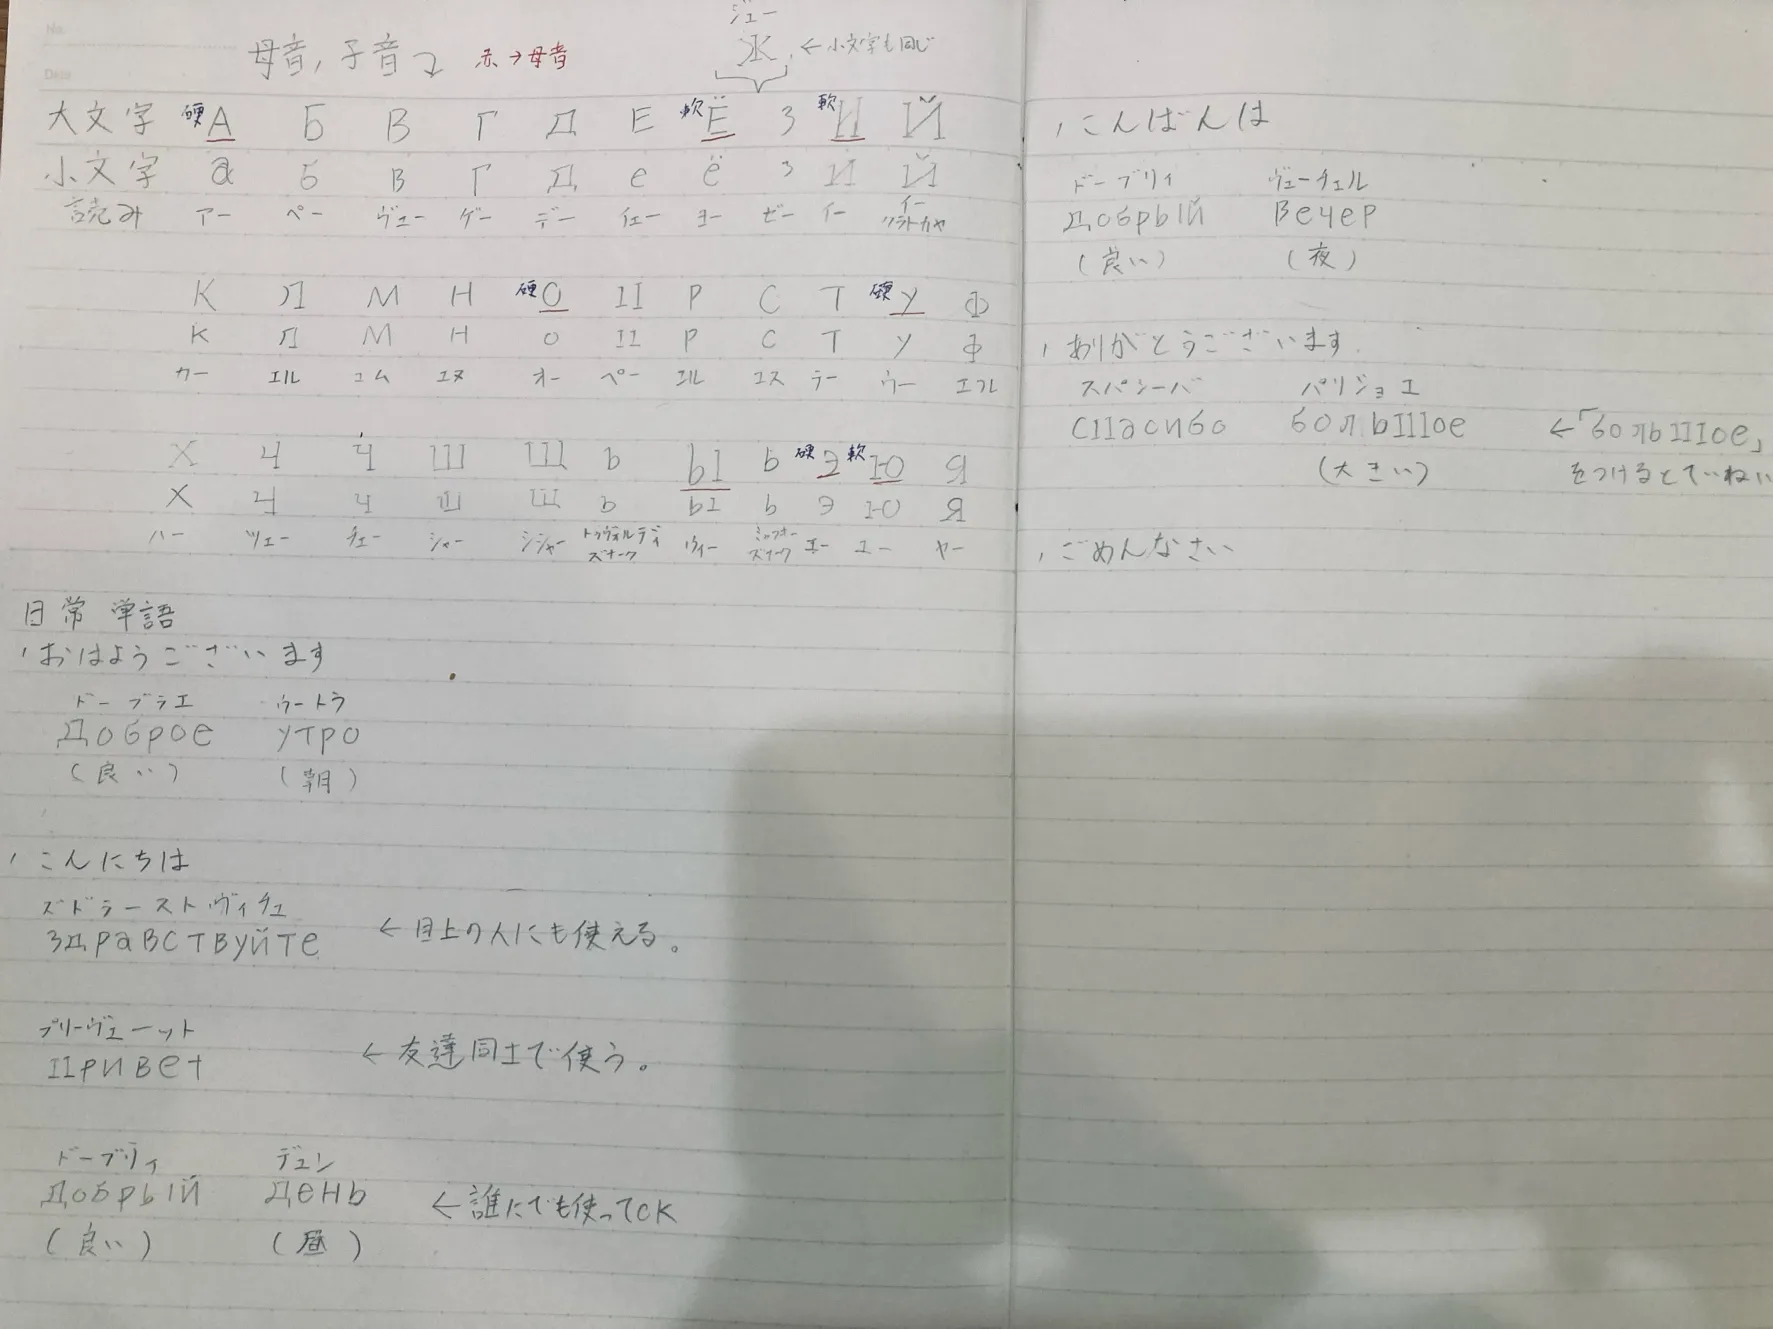 No.
Date
ジェー
Ж ←小文字も同じ
母音,子音 赤→母音
大文字 硬A Б В Г Д Е 軟Ё З 軟И Й
小文字 а Б в Г Д е ё з И Й
読み アー ペー ヴェー ゲー デー イェー ヨー ゼー イー イークラトカヤ
К Л М Н 硬О П Р С Т 硬У Ф
К Л М Н О П Р С Т У Ф
カー エル エム エヌ オー ペー エル エス テー ウー エフ
Х Ч Ч Ш Ш Ь ЫI Ь 硬Э 軟Ю Я
Х Ч Ч Ш Ш Ь Ы Ь Э Ю Я
ハー ツェー チェー シャー シシャー トゥヴョルディズナーク ウィー ミャフキーズナーク エー ユー ヤー
日常単語
・おはようございます
ドーブラエ ウートラ
Доброе утро
(良い) (朝)
・こんにちは
ズドラーストヴィチェ
Здравствуйте ←目上の人にも使える。
プリーヴェーット
Привет ←友達同士で使う。
ドーブリィ デェン
Добрый День ←誰にでも使ってOK
(良い) (昼)
・こんばんは
ドーブリィ ヴェーチェル
Добрый Вечер
(良い) (夜)
・ありがとうございます.
スパシーバ パリジョエ
спасибо большое ←「большое」
(大きい) をつけるとていねい
・ごめんなさい